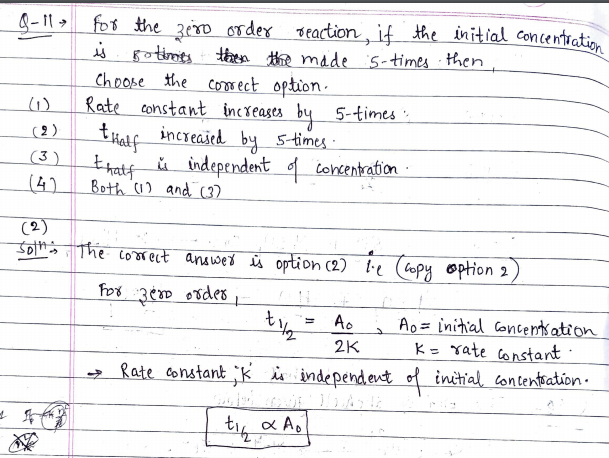 Q-11→ For the zero order reaction, if the initial concentration
is the made 5-times then,
choose the correct option.
(1) Rate constant increases by 5-times:
(2) t Half increased by 5-times.
(3) t half is independent of concentration.
(4) Both (1) and (3)
(2)
Soln:→ The correct answer is option (2) i.e (copy option 2)
For zero order,
t1/2 = A₀/2K , A₀ = initial concentration
K = rate constant.
→ Rate constant 'K' is independent of initial concentration.
t1/2 ∝ A₀